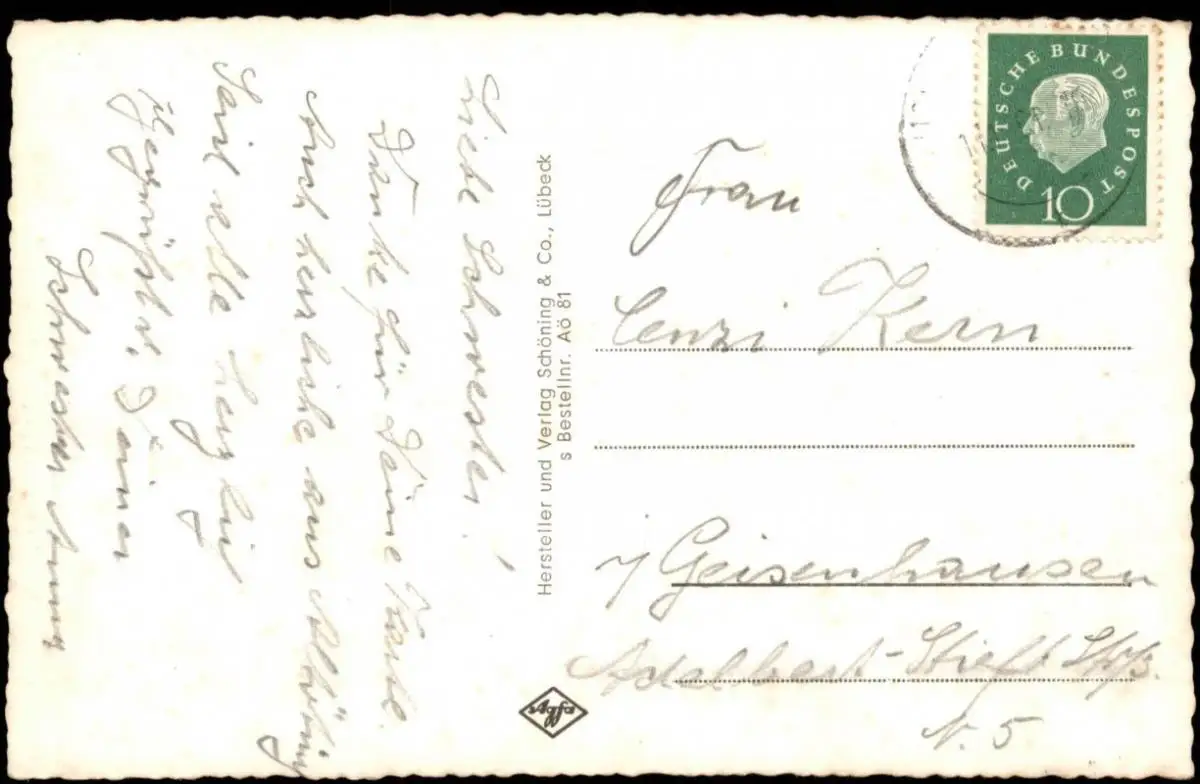 Liebe Schwester!
Danke für Deine Karte.
Auch herzliche aus Altötting
Seid alle herzlich
gegrüßt v. Deiner
Schwester Anny
Hersteller und Verlag Schöning & Co., Lübeck
s Bestellnr. Aö 81
Agfa
DEUTSCHE BUNDESPOST
10
Frau
Cenzi Kern
Geisenhausen
Adalbert-Stift Str.
N. 5